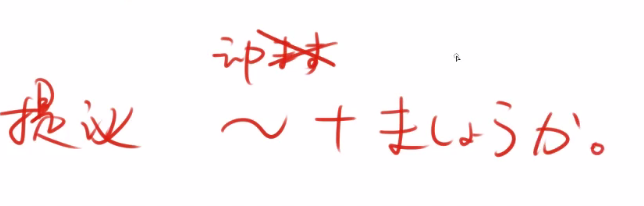 动ます
提议 ～+ましょうか。